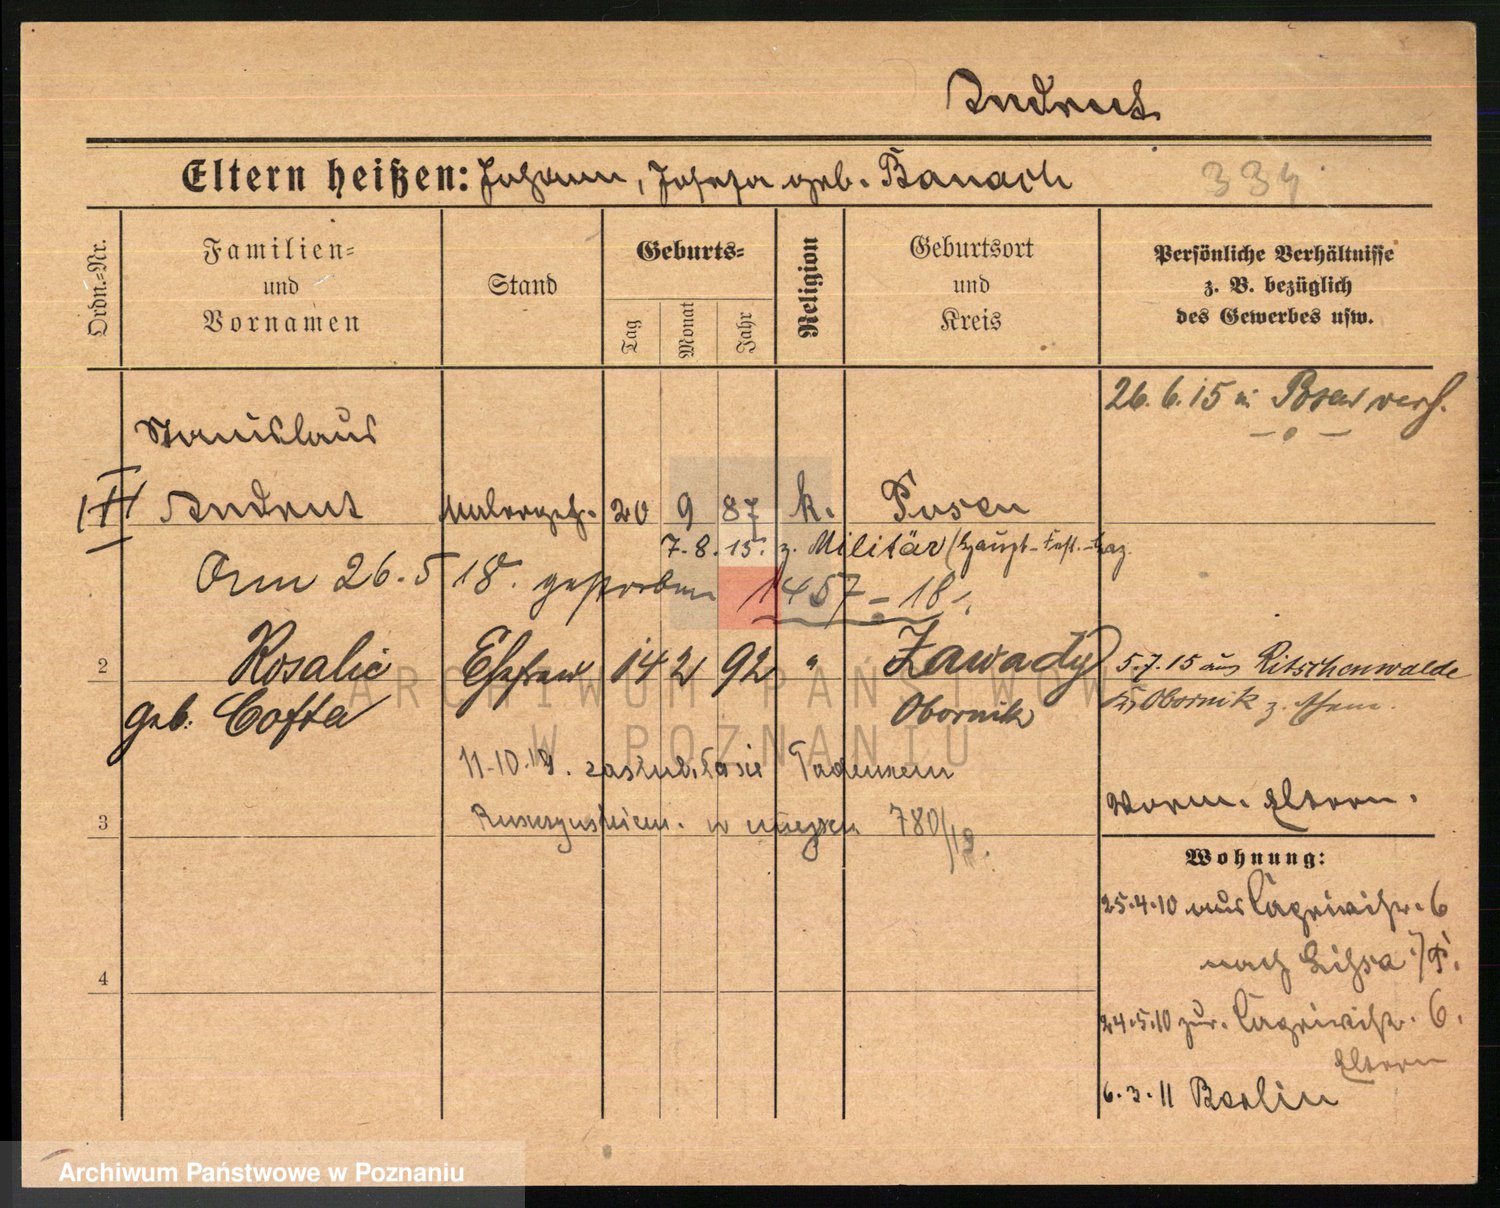 Andrut
Eltern heißen: Johann, Josefa geb. Banach
334
Ordn.=Nr.
Familien=
und
Vornamen
Stand
Geburts=
Tag
Monat
Jahr
Religion
Geburtsort
und
Kreis
Persönliche Verhältnisse
z. B. bezüglich
des Gewerbes usw.
26. 6. 15 in Posen verh.
Stanislaus
Andrut Malergeh. 20 9 87 k. Posen
7. 8. 15. z. Militär
Am 26. 5 18. gestorben 1457 - 18
2 Rosalie Ehefrau 14 2 92 " Zawady 5. 7. 15 aus Ritschenwalde
geb. Cofta Obornik Obornik z. Ehem.
11-10.19. Tadeuszem
w miejscu 780/19.
3
Vorm. Eltern.
Wohnung:
25.4.10 aus 6
nach Lissa i/P.
24.5.10 zur. 6.
Eltern
4
6. 3. 11 Berlin
ARCHIWUM PAŃSTWOWE
W POZNANIU
Archiwum Państwowe w Poznaniu